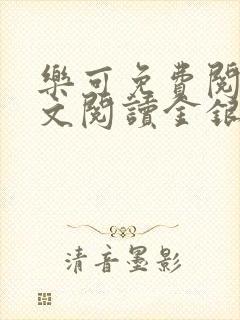 樂可免費閱
文閱讀金銀
清音墨影